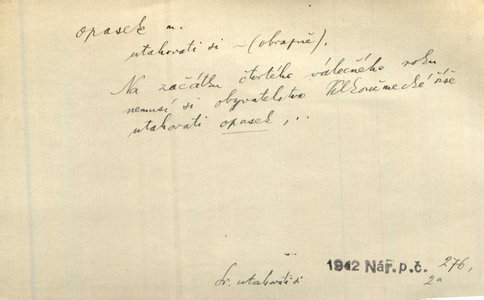 opasek m.
utahovati si ~ (obrazně),
Na začátku čtvrtého válečného roku
nemusí si obyvatelstvo Velkoněmecké říše
utahovati opasek, ..
1942 Nář. p. č. 276,
2a
Sr. utahovati si